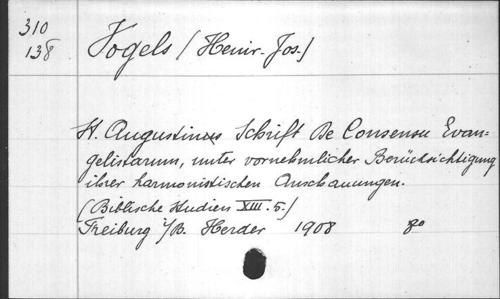 310
138
Vogels (Heinr. Jos.)
St. Augustinus Schrift De Consensu Evan-
gelistarum, unter vornehmlicher Berücksichtigung
ihrer harmonistischen Anschauungen.
(Biblische Studien XIII. 5.)
Freiburg i/B. Herder 1908